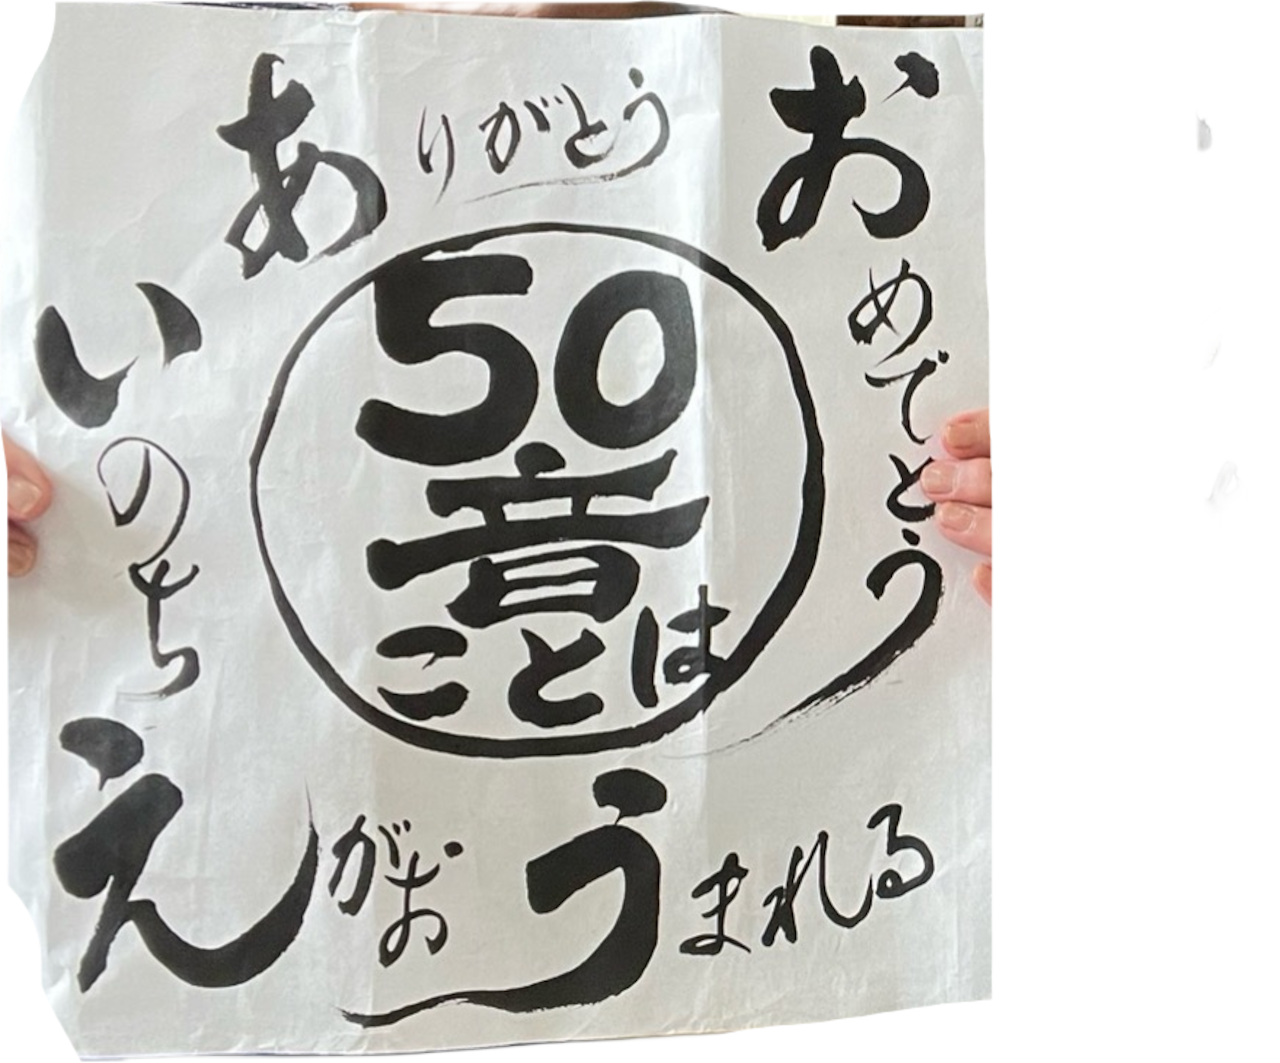 50
音
ことは
ありがとう
いのち
うまれる
えがお
おめでとう